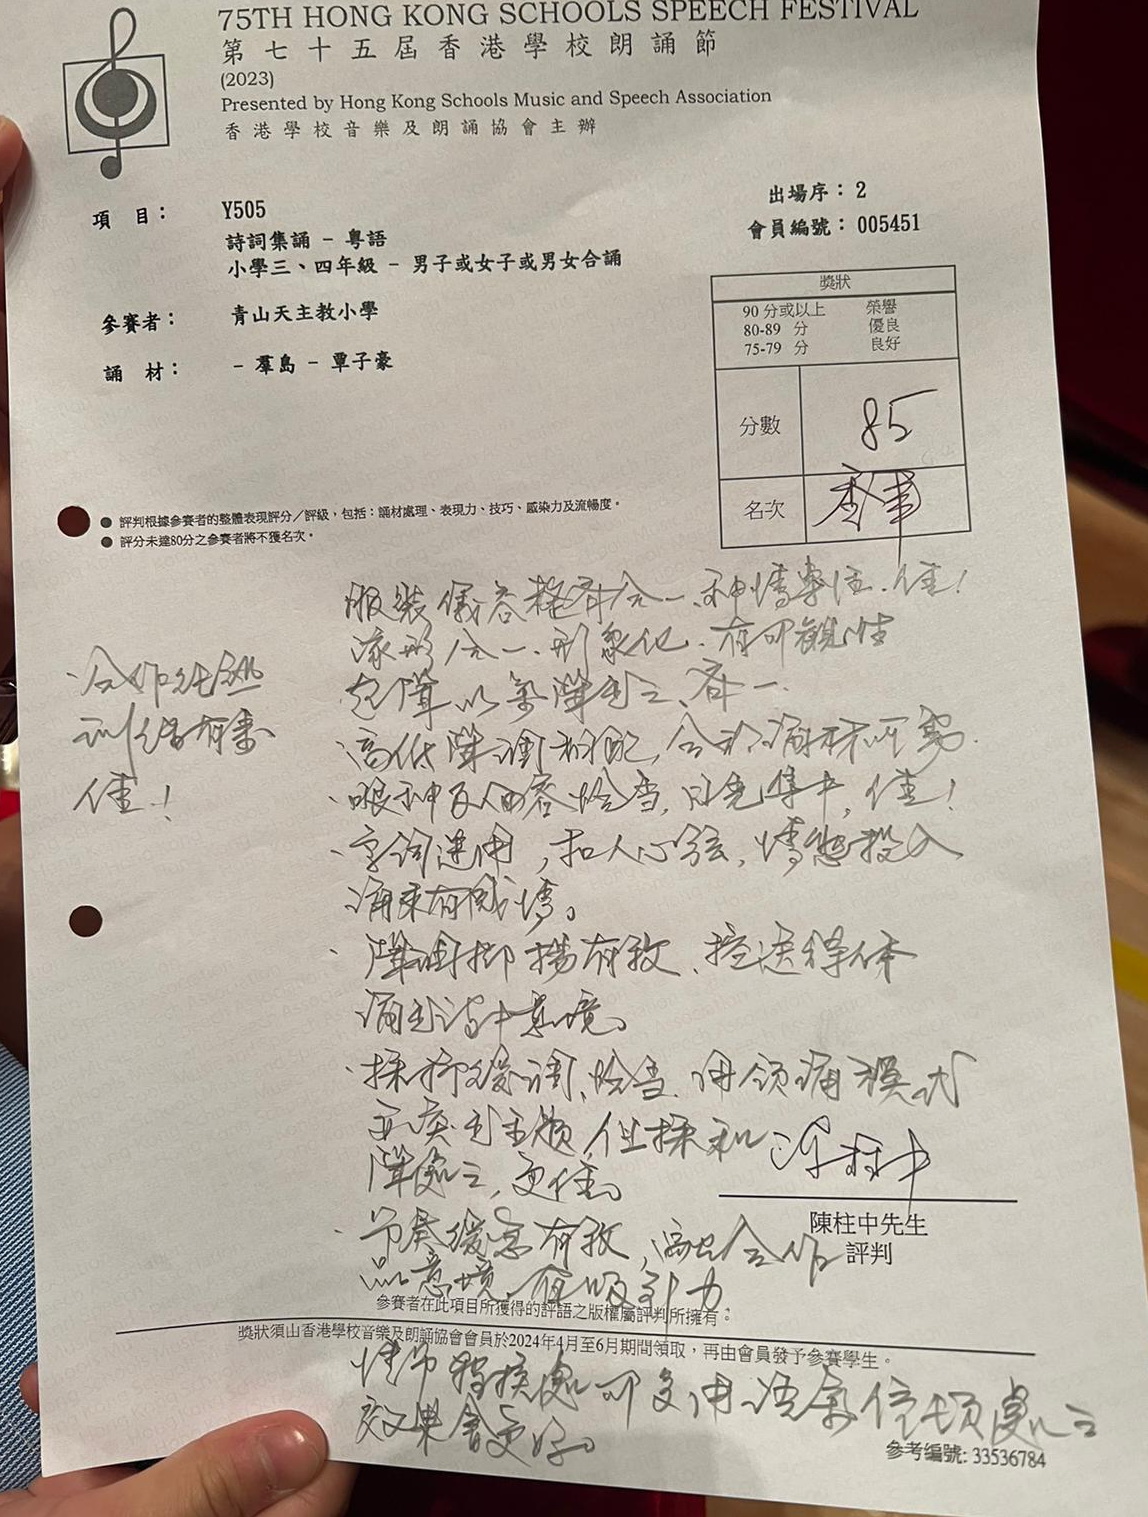 75TH HONG KONG SCHOOLS SPEECH FESTIVAL
第七十五屆香港學校朗誦節
(2023)
Presented by Hong Kong Schools Music and Speech Association
香港學校音樂及朗誦協會主辦
出場序：2
項 目： Y505
會員編號：005451
詩詞集誦 - 粵語
小學三、四年級 - 男子或女子或男女合誦
參賽者： 青山天主教小學
誦 材： - 羣島 - 覃子豪
獎狀
90 分或以上 榮譽
80-89 分 優良
75-79 分 良好
分數 85
名次
● 評判根據參賽者的整體表現評分／評級，包括：誦材處理、表現力、技巧、感染力及流暢度。
● 評分未達80分之參賽者將不獲名次。
服裝儀容整齊合一、神情專注.佳！
合一、形象化.有可觀性
起聲以氣聲出之、齊一.
高低聲調相配，合於誦材所寫.
·合作純熟
訓練有素
佳！
·眼神及人面容恰當，目光集中，佳！
·字詞運用，扣人心弦，情態投入
誦來有感情。
·聲調抑揚有致、控送得体
誦出詩中意境。
恰當.用領誦模式
主題，但採和
聲處之，更佳。
·節奏緩急有致，
意境，有吸引力
陳柱中先生
評判
參賽者在此項目所獲得的評語之版權屬評判所擁有。
獎狀須由香港學校音樂及朗誦協會會員於2024年4月至6月期間領取，再由會員發予參賽學生。
情節轉換處可多用語氣停頓處之
效果會更好。
參考編號: 33536784